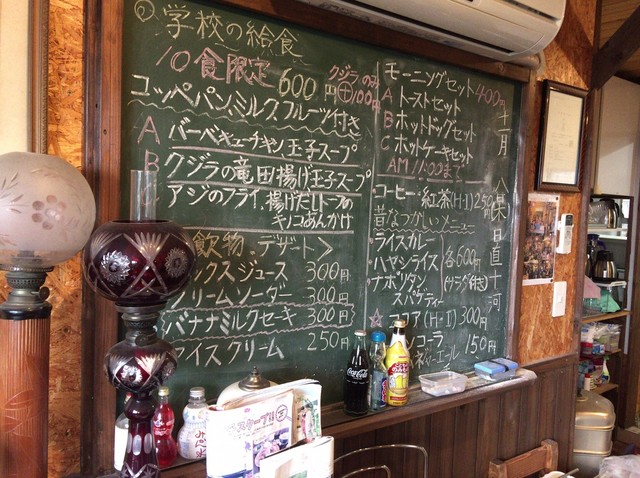 ②学校の給食
10食限定 600円
クジラのみ
⊕100円
コッペパンミルクフルーツ付き
A バーベキューチキン 玉子スープ
B クジラの竜田揚げ 玉子スープ
アジのフライ、揚げだしトーフの
キノコあんかけ
飲物、デザート>
ックスジュース 300円
リームソーダー 300円
バナナミルクセーキ 300円
アイスクリーム 250
モーニングセット 400円
A トーストセット
B ホットドッグセット
C ホットケーキセット
AM 11:00まで
コーヒー・紅茶(H・I) 250円
昔なつかしいメニュー
・ライスカレー
・ハヤシライス
・ナポリタン
スパゲティー
各600円
(サラダ付き)
ココア(H・I) 300円
コーラ
エール 150円
十一月 八東日直十河
Coca-Cola